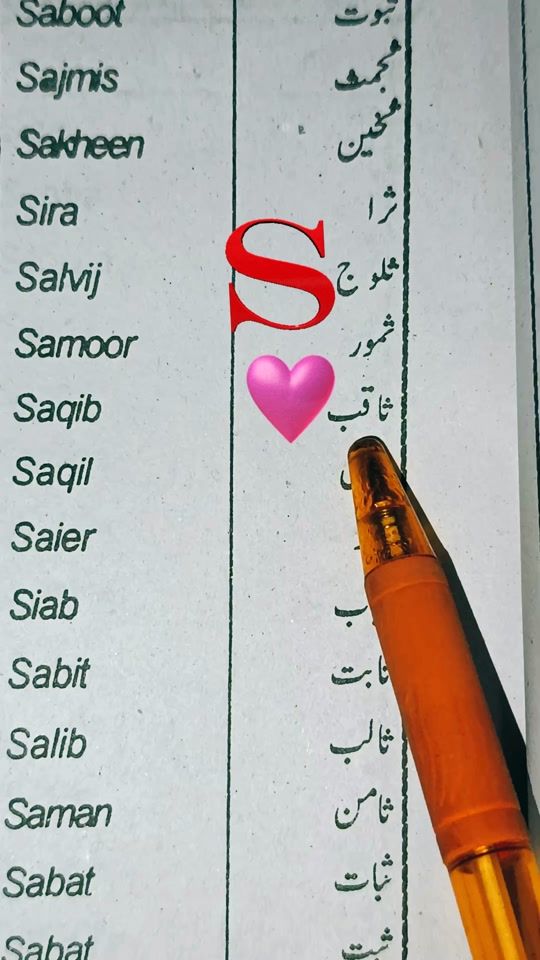 Saboot ثبوت
Sajmis ثجمث
Sakheen ثخین
Sira ثرا
S
Salvij ثلوج
Samoor ثمور
Saqib ثاقب
Saqil
Saier
Siab
Sabit ثابت
Salib ثالب
Saman ثامن
Sabat ثبات
Sabat ثبت